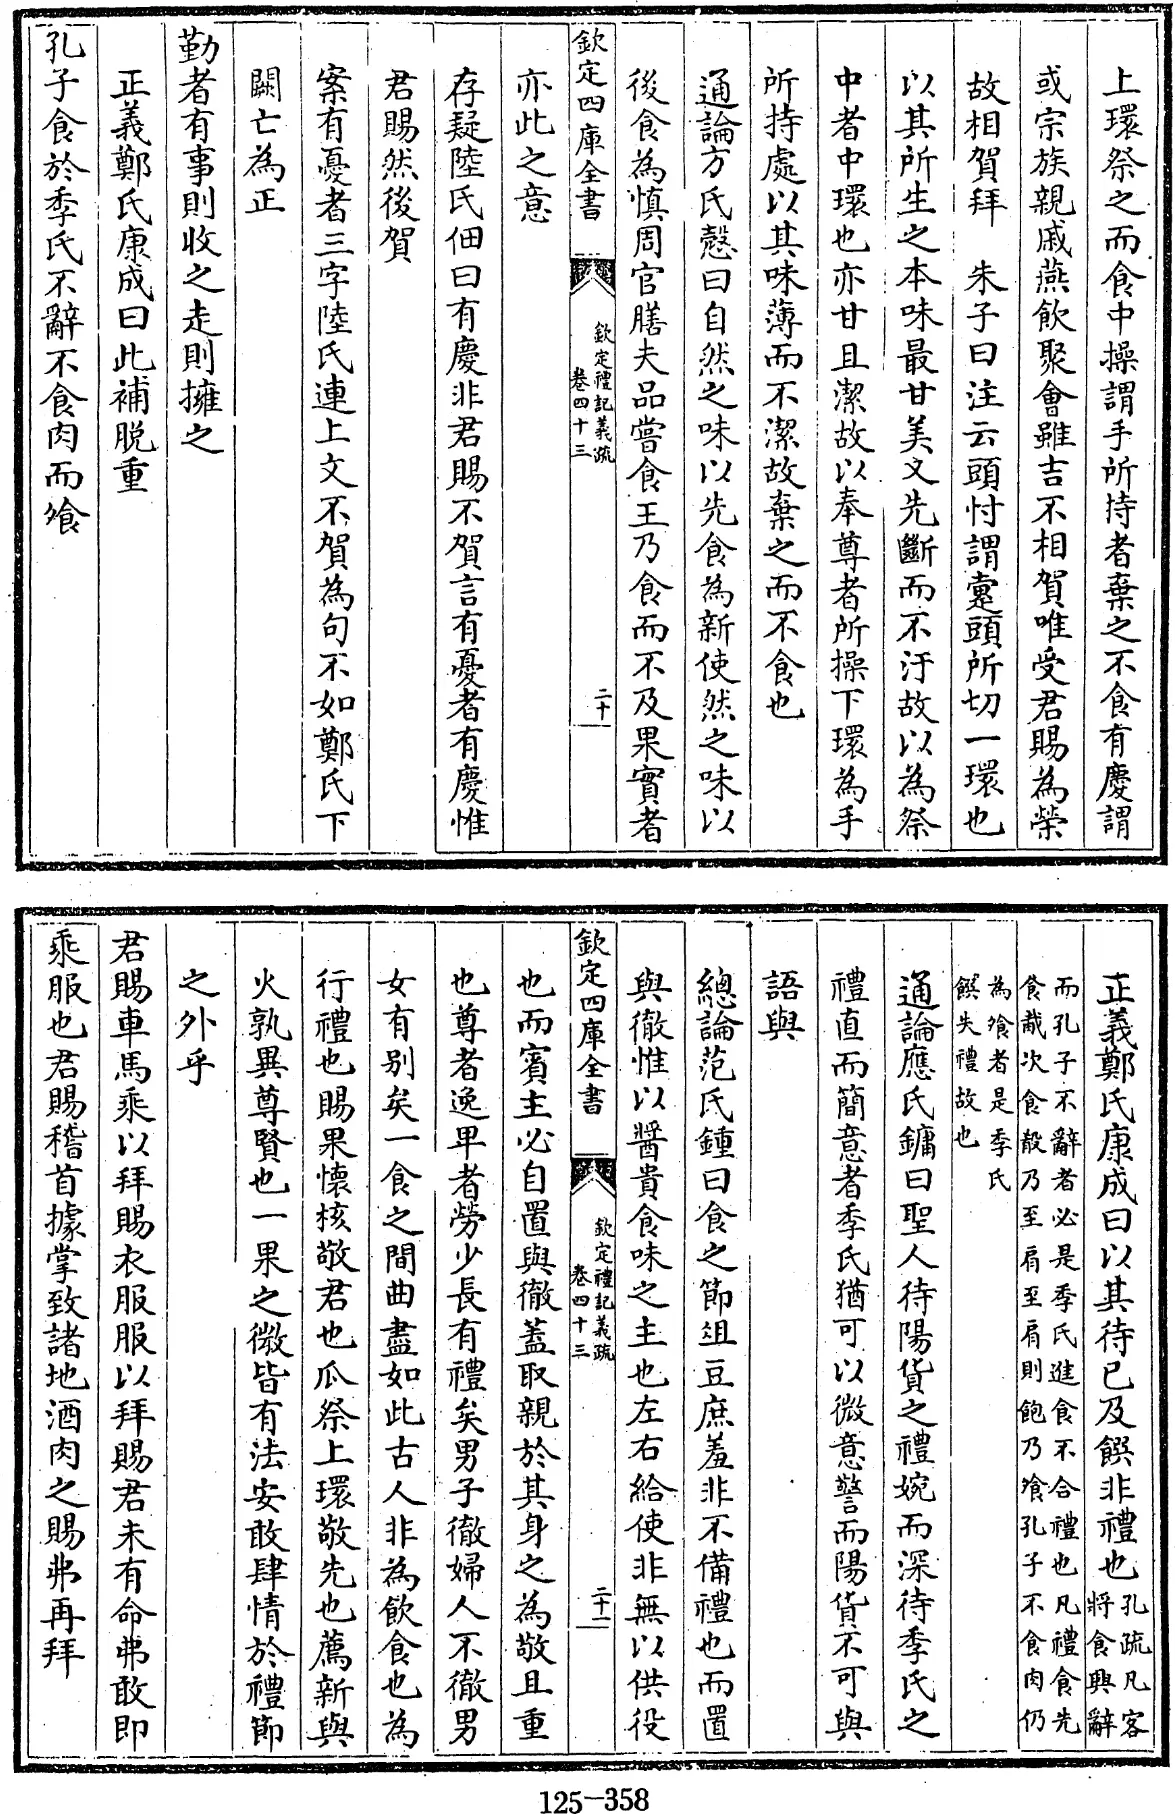 上環祭之而食中操謂手所持者棄之不食有慶謂
或宗族親戚燕飲聚會雖吉不相賀唯受君賜為榮
故相賀拜　朱子曰注云頭忖謂疐頭所切一環也
以其所生之本味最甘美文先斷而不汙故以為祭
中者中環也亦甘且潔故以奉尊者所操下環為手
所持處以其味薄而不潔故棄之而不食也
通論方氏慤曰自然之味以先食為新使然之味以
後食為慎周官膳夫品嘗食王乃食而不及果實者
欽定四庫全書
欽定禮記義疏
卷四十三
二十
亦此之意
存疑陸氏佃曰有慶非君賜不賀言有憂者有慶惟
君賜然後賀
案有憂者三字陸氏連上文不賀為句不如鄭氏下
闕亡為正
勤者有事則收之走則擁之
正義鄭氏康成曰此補脫重
孔子食於季氏不辭不食肉而飧
正義鄭氏康成曰以其待已及饌非禮也
孔疏凡客
將食興辭
而孔子不辭者必是季氏進食不合禮也凡禮食先
食胾次食殽乃至肩至肩則飽乃飧孔子不食肉仍
為飧者是季氏
饌失禮故也
通論應氏鏞曰聖人待陽貨之禮婉而深待季氏之
禮直而簡意者季氏猶可以微意警而陽貨不可與
語與
總論范氏鍾曰食之節俎豆庶羞非不備禮也而置
與徹惟以醬貴食味之主也左右給使非無以供役
欽定四庫全書
欽定禮記義疏
卷四十三
二十一
也而賓主必自置與徹蓋取親於其身之為敬且重
也尊者逸卑者勞少長有禮矣男子徹婦人不徹男
女有別矣一食之間曲盡如此古人非為飲食也為
行禮也賜果懷核敬君也瓜祭上環敬先也薦新與
火孰異尊賢也一果之微皆有法安敢肆情於禮節
之外乎
君賜車馬乘以拜賜衣服服以拜賜君未有命弗敢即
乘服也君賜稽首據掌致諸地酒肉之賜弗再拜
125-358